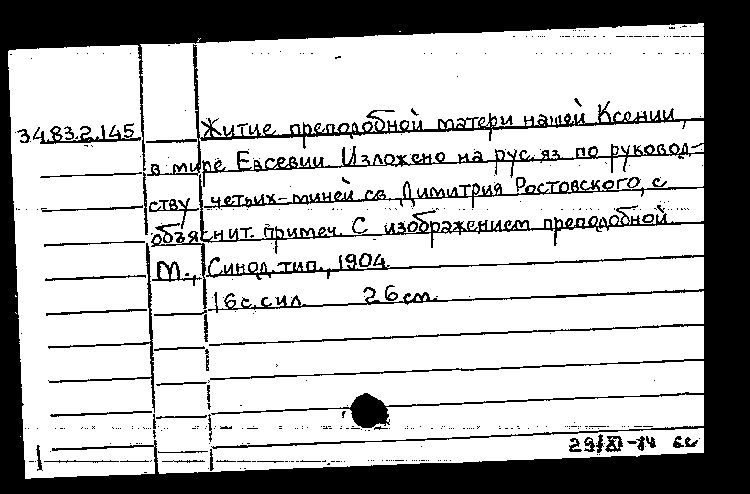 34.83.2.145 Житие преподобной матери нашей Ксении,
в мире Евсевии. Изложено на рус. яз. по руковод-
ству четьих-миней св. Димитрия Ростовского, с
объяснит. примеч. С изображением преподобной.
М., Синод. тип., 1904.
16 с. с ил. 26 см.
29/XI-74